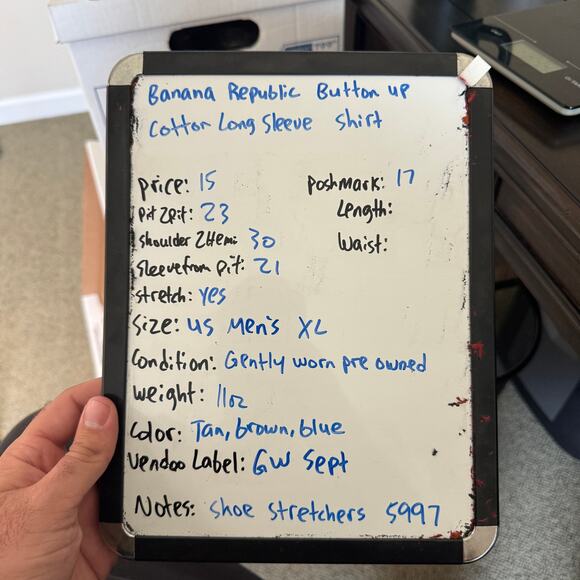 Banana Republic Button up
Cotton Long Sleeve Shirt
price: 15 poshmark: 17
pit 2 pit: 23 Length:
shoulder 2 Hem: 30 Waist:
Sleeve from pit: 21
stretch: yes
Size: US Men's XL
Condition: Gently worn pre owned
weight: 11oz
Color: Tan, brown, blue
Vendoo Label: GW Sept
Notes: shoe stretchers 5997